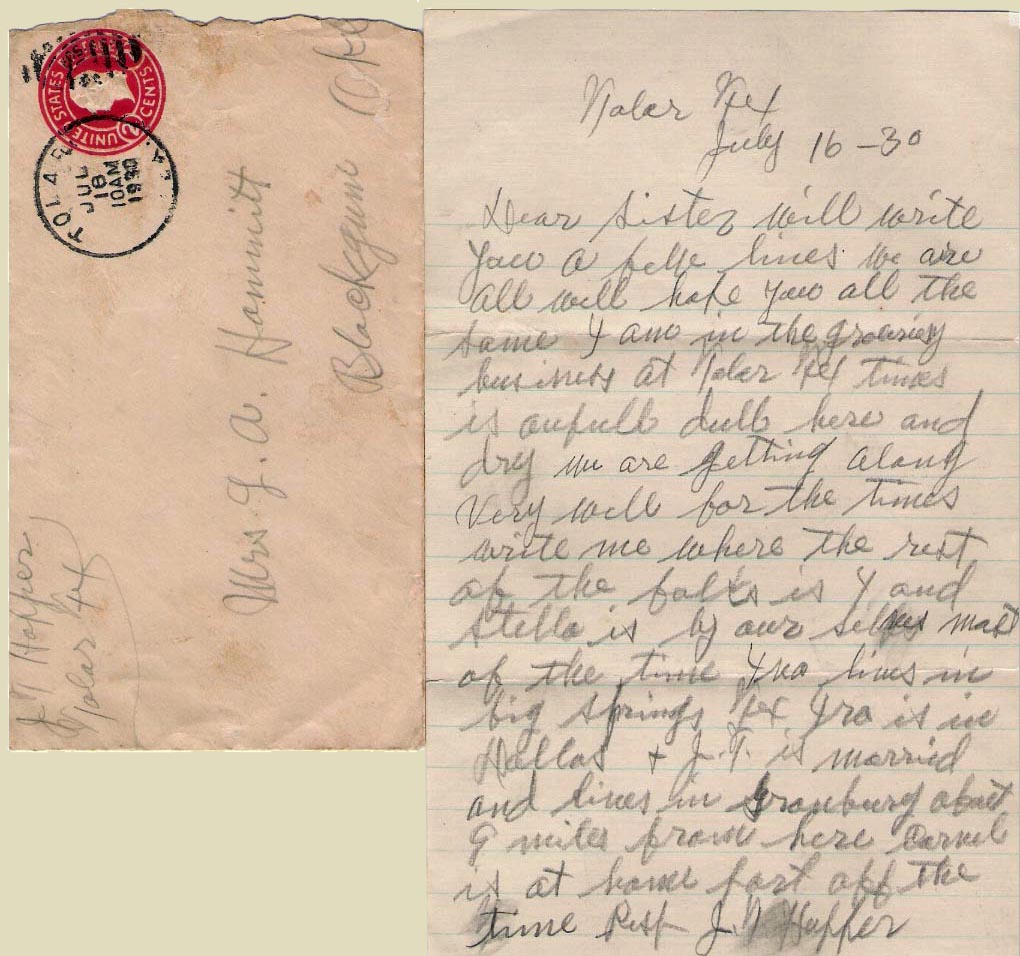 UNITED STATES
2 CENTS
TOLAR
JUL
18
10AM
1930
Mrs. G. A. Hammitt
Blackgum
Okl
J T Hopper
Tolar Tex
Tolar Tex
July 16 - 30
Dear Sister will write
you a felle lines we are
all well hope you all the
same I am in the grociery
business at Tolar Tex times
is aufull dull here and
dry we are getting along
very well for the times
write me where the rest
of the folks is I and
Stella is by our selves most
of the time lives in
big Springs Tex Ira is in
Dallas + J.T. is married
and lives in Granburg about
9 miles from here Carmel
is at home part off the
time Resp J.T Hopper